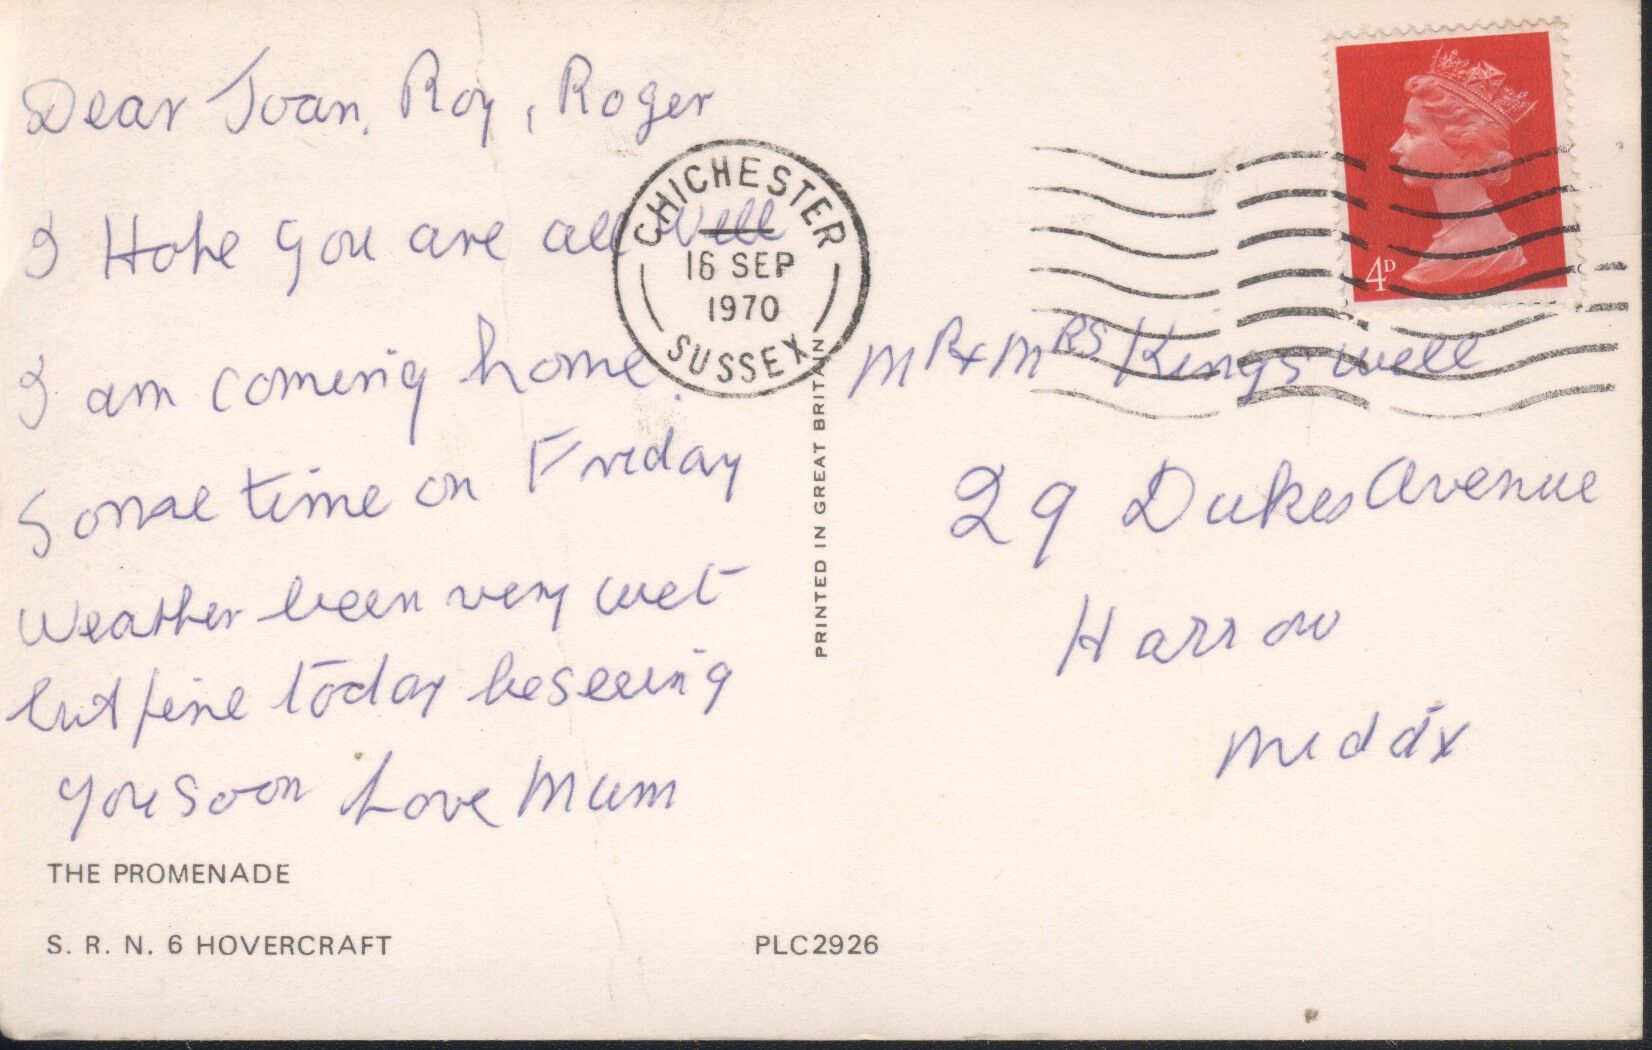 Dear Joan, Roy, Roger
I Hope you are all well
I am coming home.
Some time on Friday
Weather been very wet
but fine today beseeing
you soon Love Mum
THE PROMENADE
S. R. N. 6 HOVERCRAFT
PLC2926
CHICHESTER
16 SEP
1970
SUSSEX
PRINTED IN GREAT BRITAIN
4D
MR + MRS Kingswell
29 Dukes Avenue
Harrow
Middx